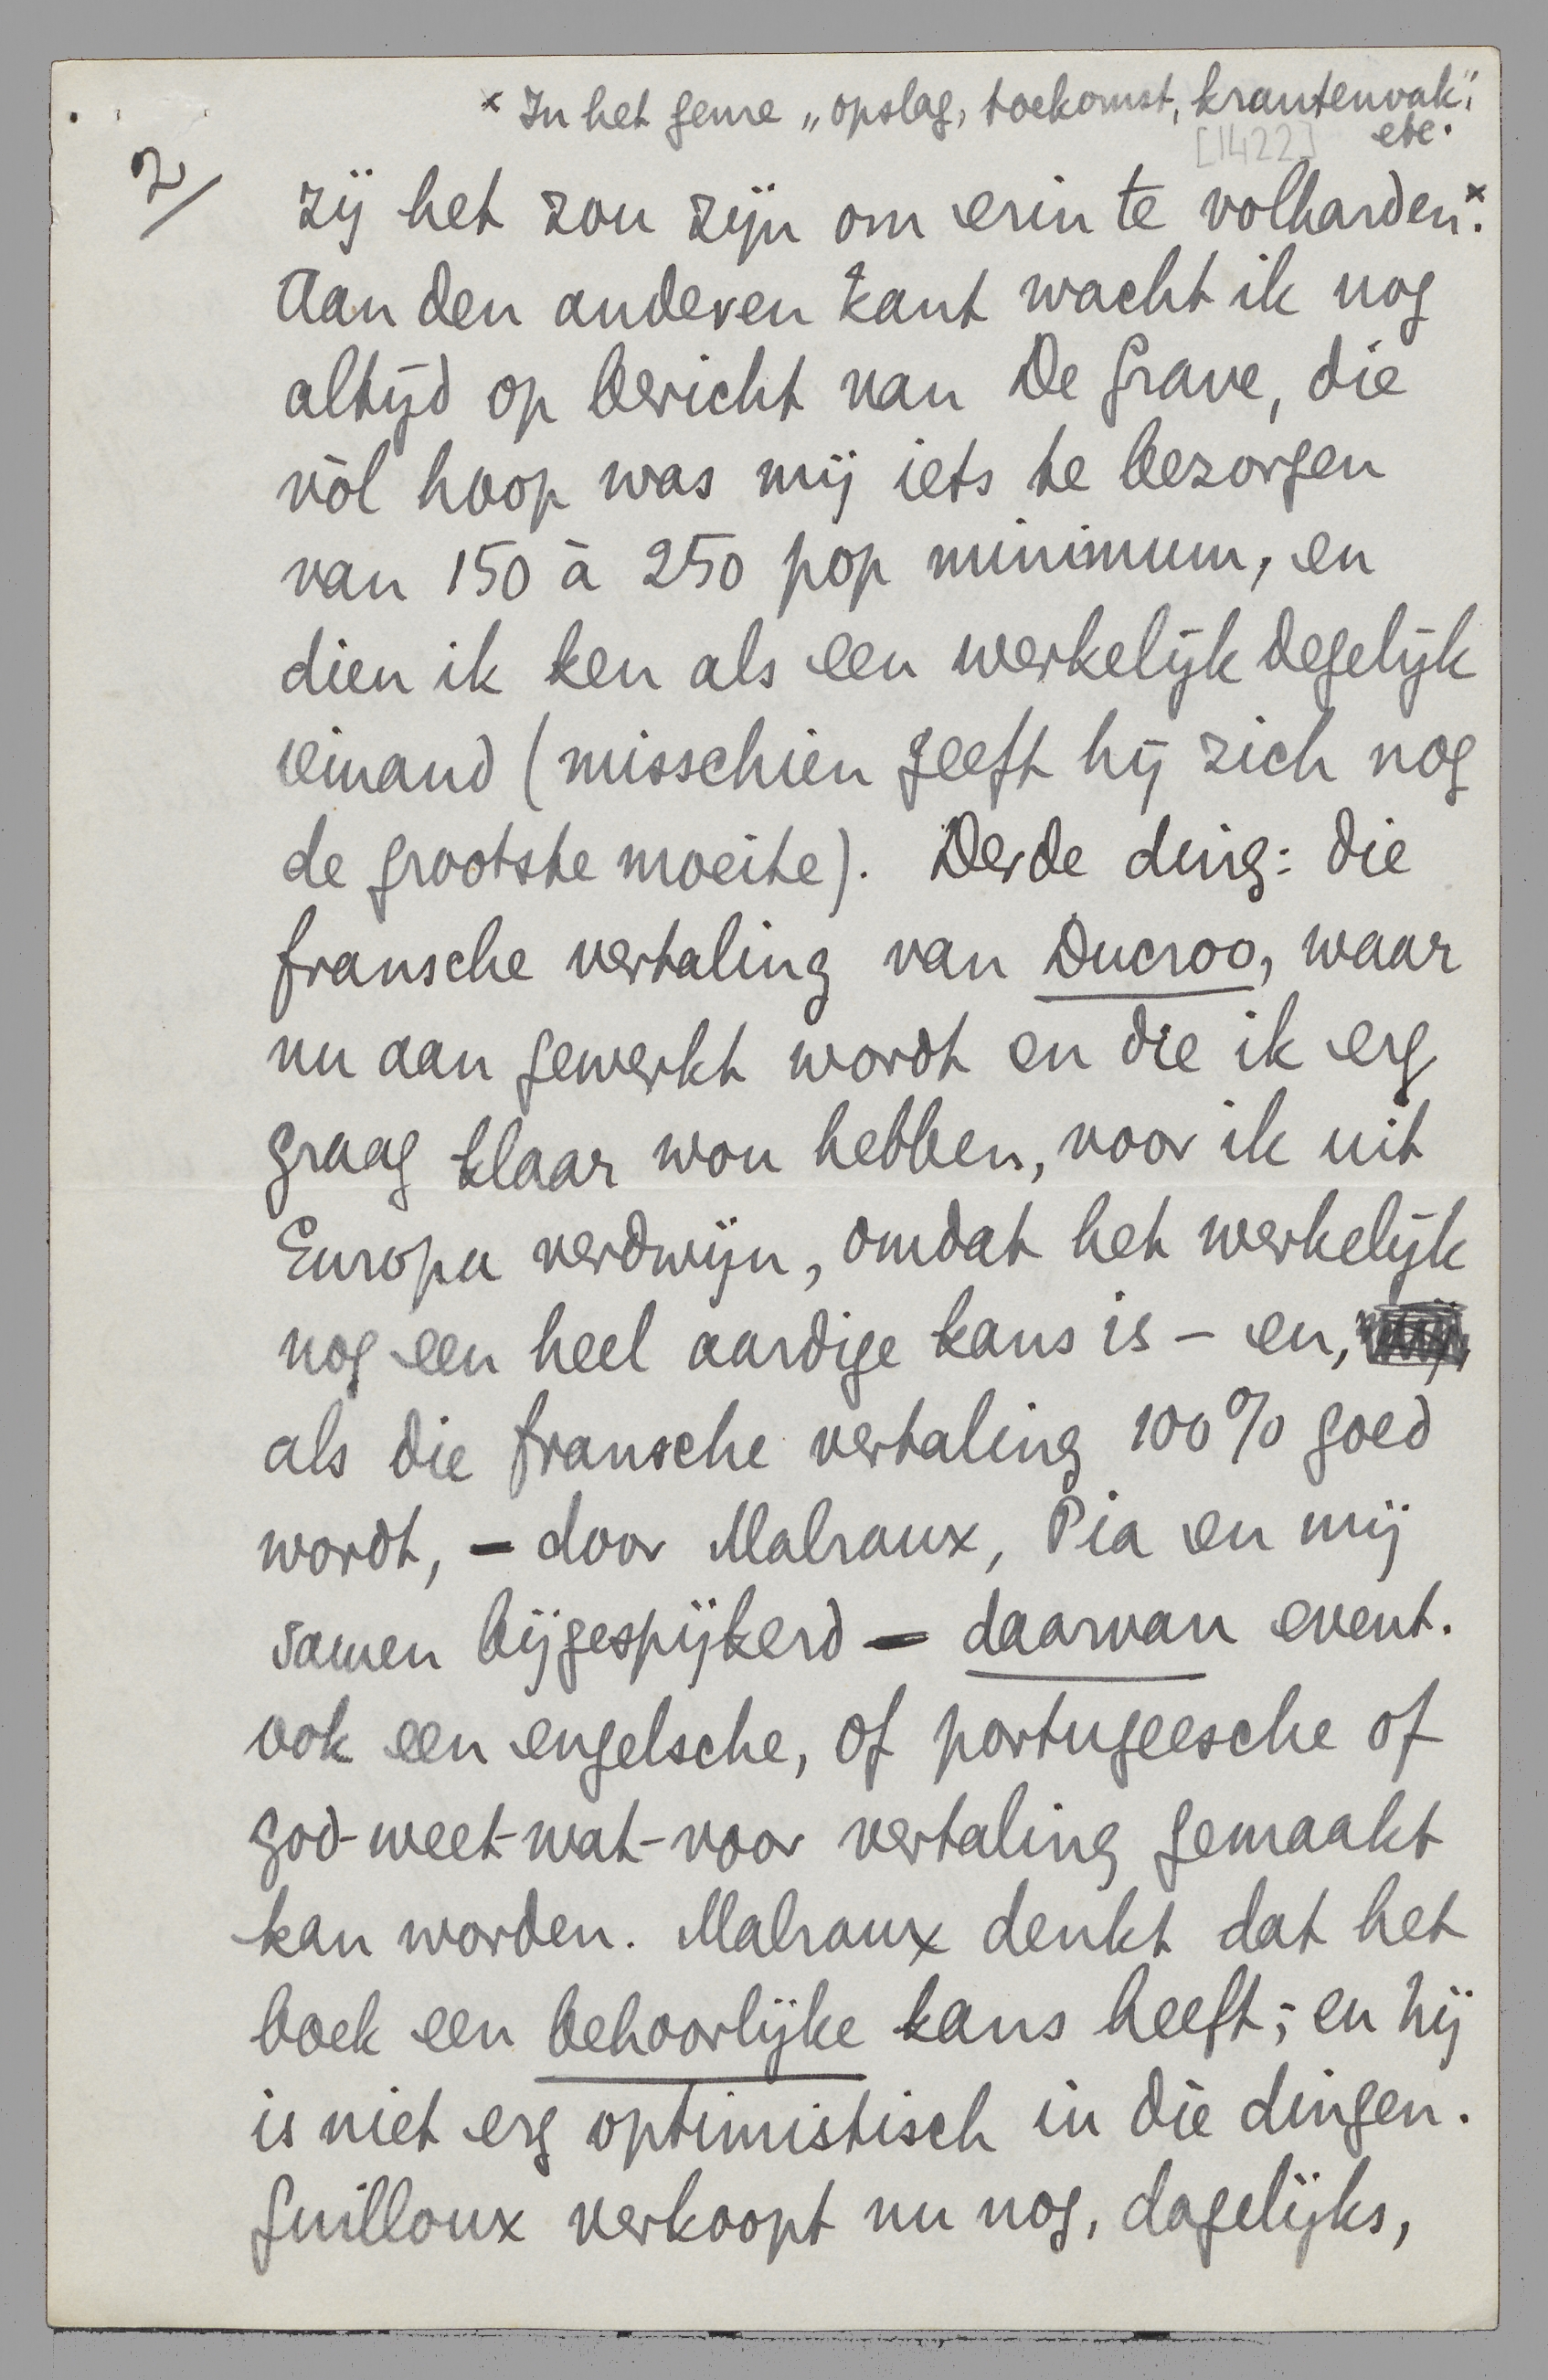 × In het genre „opslag, toekomst, krantenvak",
etc.
[1422]
2/
zij het zou zijn om erin te volharden.×
Aan den anderen kant wacht ik nog
altijd op bericht van De Grave, die
vòl hoop was mij iets te bezorgen
van 150 à 250 pop minimum, en
dien ik ken als een werkelijk degelijk
iemand (misschien geeft hij zich nog
de grootste moeite). Derde ding: die
fransche vertaling van Ducroo, waar
nu aan gewerkt wordt en die ik erg
graag klaar wou hebben, voor ik uit
Europa verdwijn, omdat het werkelijk
nog een heel aardige kans is – en,
als die fransche vertaling 100% goed
wordt, – door Malraux, Pia en mij
samen bijgespijkerd – daarvan event.
ook een engelsche, of portugeesche of
god-weet-wat-voor vertaling gemaakt
kan worden. Malraux denkt dat het
boek een behoorlijke kans heeft; en hij
is niet erg optimistisch in die dingen.
Guilloux verkoopt nu nog, dagelijks,